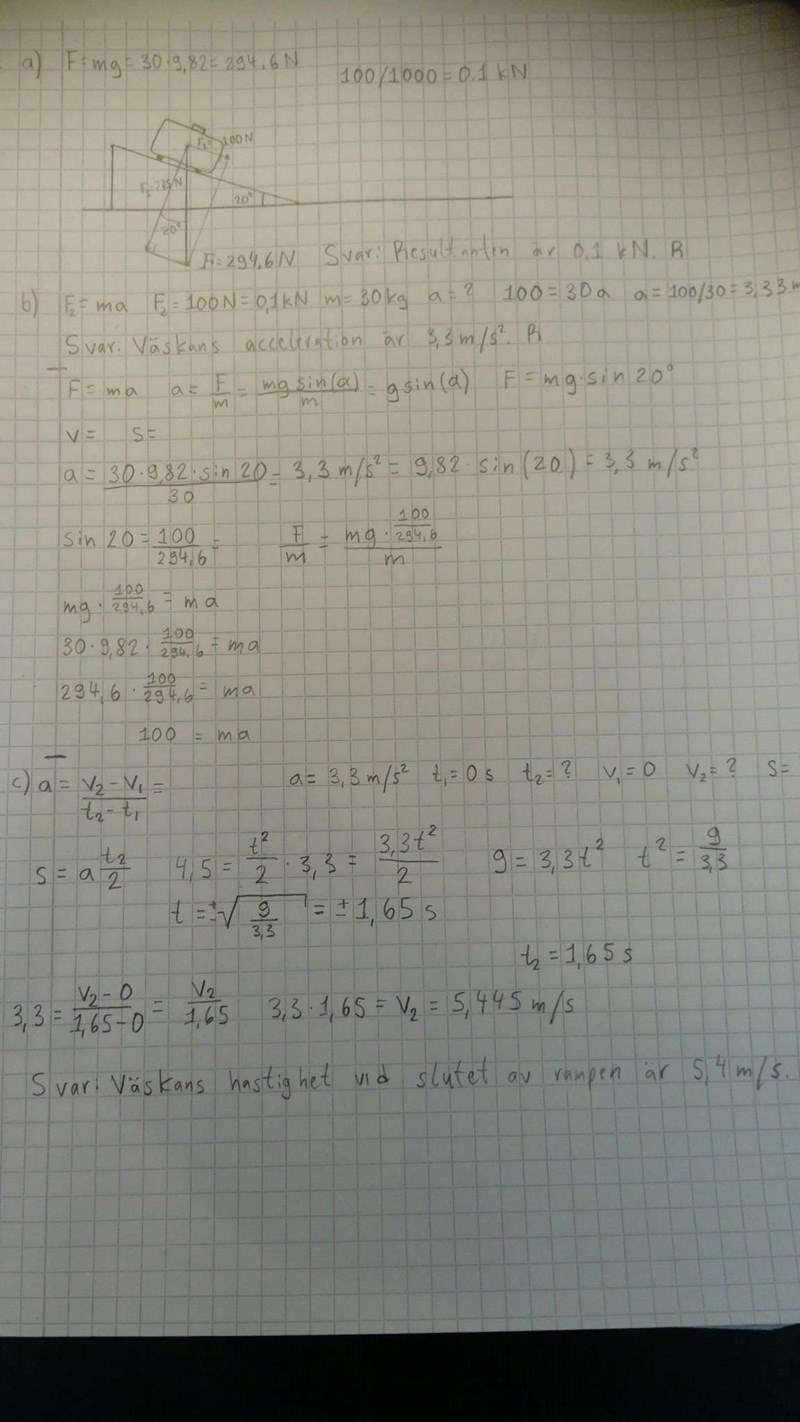 a) F=mg=30·9,82=294.6N 100/1000=0.1 kN
100N
20°
20°
F=294,6N Svar: Resultanten är 0,1 kN. R
b) F₂=ma F₂=100N=0,1kN m=30kg a=? 100=30a a=100/30=3,33
Svar: Väskans acceleration är 3,3m/s². R
F=ma a=F/m=mg sin(α)/m=g sin(α) F=mg·sin 20°
v= s=
a=30·9,82·sin 20/30=3,3 m/s²=9,82·sin(20)=3,3 m/s²
sin 20=100/294,6= F/m=mg·100/294,6/m
mg·100/294,6=ma
30·9,82·100/294,6=ma
294,6·100/294,6=ma
100=ma
c) a=v₂-v₁/t₂-t₁= a=3,3m/s² t₁=0s t₂=? v₁=0 v₂=? s=
s=a t²/2 4,5=t²/2·3,3=3,3t²/2 9=3,3t² t²=9/3,3
t=±√9/3,3=±1,65s
t₂=1,65s
3,3=v₂-0/1,65-0=v₂/1,65 3,3·1,65=v₂=5,445m/s
Svar: Väskans hastighet vid slutet av rampen är 5,4m/s.